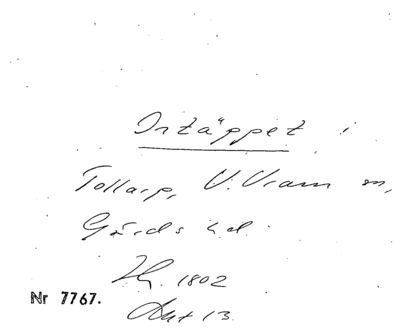 Ortäppet i
Tollarp, V. Vram sn,
Gärds hd.
1802
Akt 13.
Nr 7767.